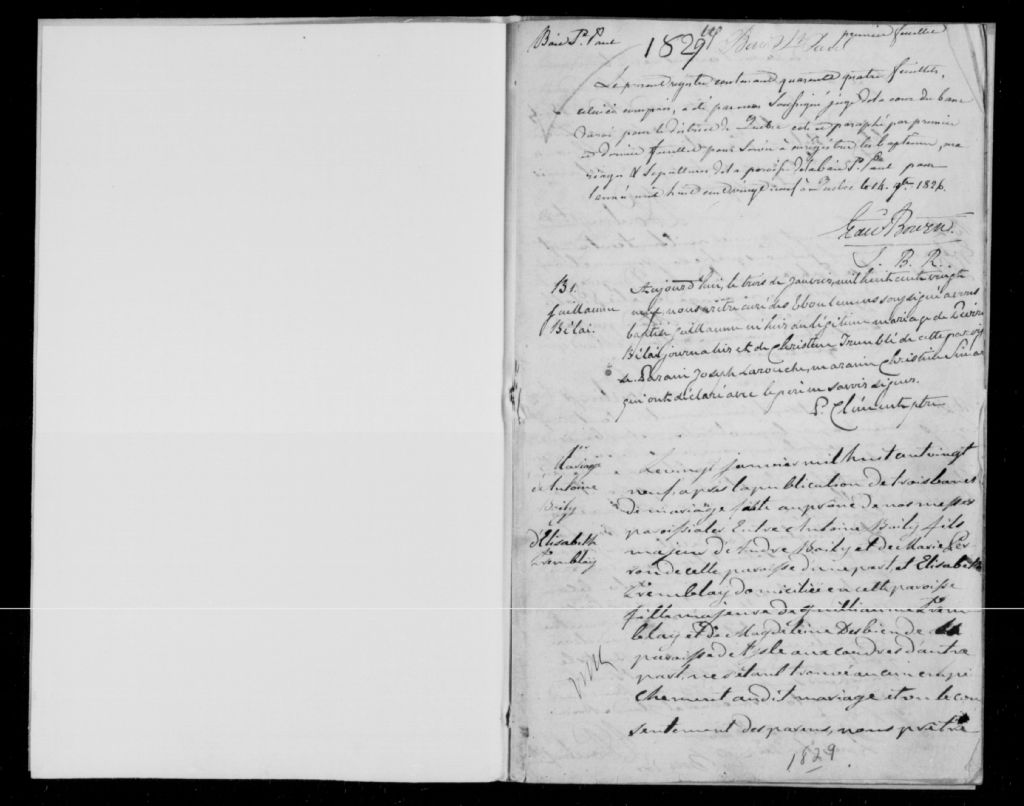 Baie St. Paul
1829
Baie St Paul
premier feuillet
Le present registre contenant quarante quatre feuillets,
celui ci compris, a été par nous Soussigné juge de la cour du banc
du roi pour le district de Quebec coté et paraphé par premier
et dernier feuillet pour servir à enregistrer les baptemes, ma
riages & Sepultures de la paroisse de la baie St. Paul pour
l'année mil huit cent vingt neuf à Quebec le 14. 9bre 1828.
Edwd Bowen.
J. B. R.
B 1.
Guillaume
Bélai.
Aujourd'hui, le trois de Janvier, mil huit cent vingt
neuf, nous prêtre curé des Eboulemens soussigné avons
baptisé Guillaume né hier en légitime mariage de
Bélai journalier et de Christine Trumblé de cette parois
se. Parain Joseph Larouche, maraine Christine
qui ont déclaré avec le père ne savoir signer.
P. Clément ptre
1er
Mariage
d'Antoine
Boily
d'Elisabeth
Tremblay
Le vingt Janvier mil huit cent vingt
neuf, après la publication de trois bans
de mariage faite au prône de nos messes
paroissiales Entre Antoine Boily fils
majeur de André Boily et de Marie Per
ron de cette paroisse d'une part, et Elisabeth
Tremblay domiciliée en cette paroisse
fille majeure de Guilliaume Trem
blay et de Magdeleine Desbien de la
paroisse de l'Isle aux coudres d'autre
part, ne s'étant trouvé aucun empê
chement au dit mariage et vu le con
sentement des parens, nous prêtre
1829